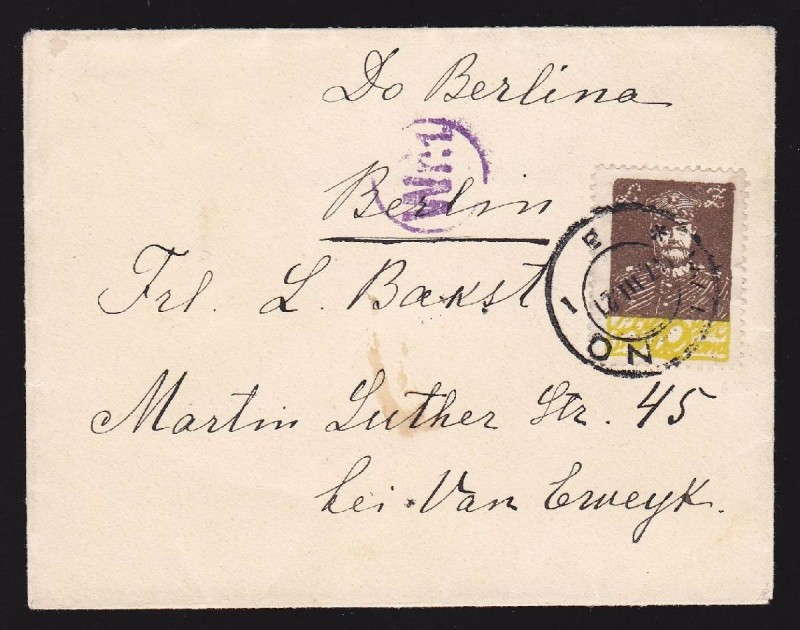 Do Berlina
Berlin
Frl. L. Bakst
Martin Luther Str. 45
bei Van Erweyk.